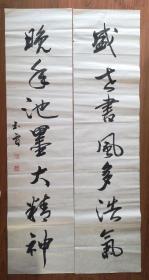 盛世書風多浩氣
晚年池墨大精神